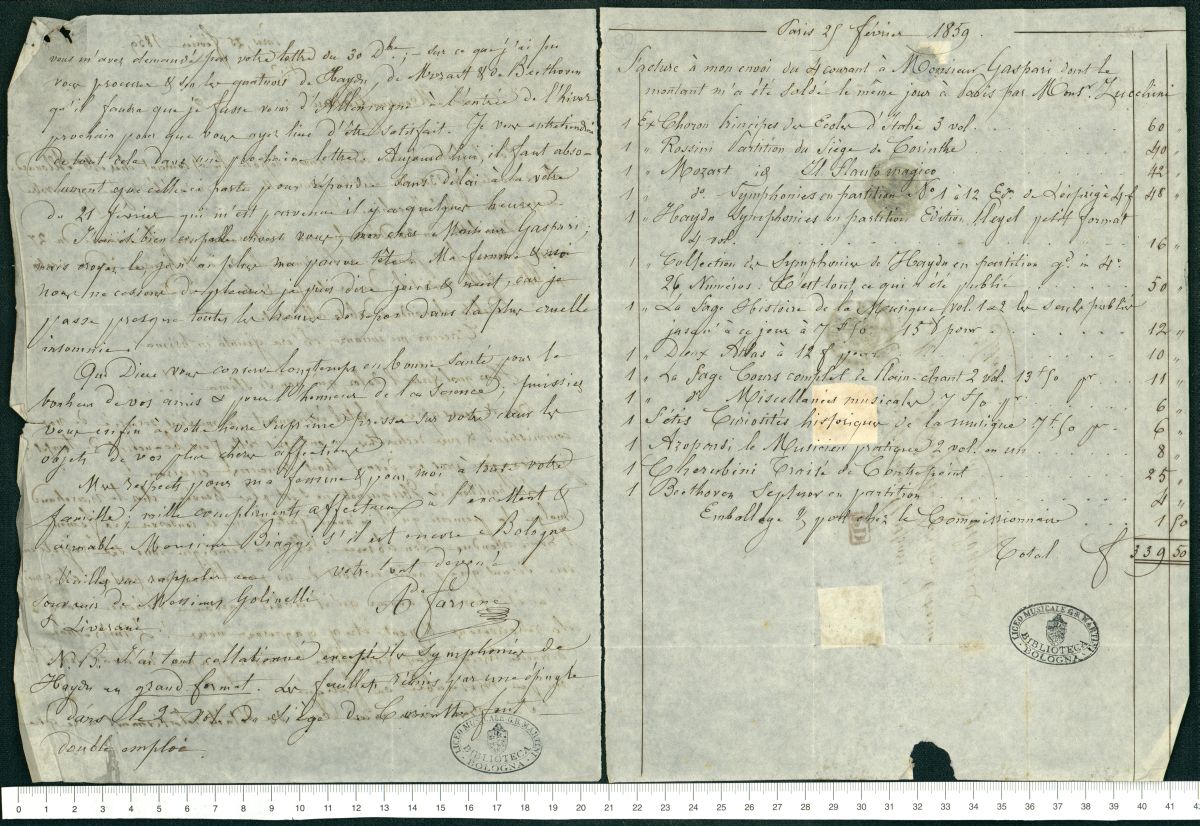 vous m'avez demandés par votre lettre du 30 Dbre, sur ce que j'ai pu
vous procurer & sur les quatuors de Haydn, de Mozart & de Beethoven
qu'il faudra que je fasse venir d'Allemagne à l'entrée de l'hiver
prochain pour que vous ayez lieu d'être satisfait. Je vous entretiendrai
de tout cela dans une prochaine lettre. Aujourd'hui, il faut abso-
lument que celle-ce parte pour répondre sans délai à la vôtre
du 21 février qui m'est parvenue il y a quelques heures.
J'ai été bien coupable envers vous mon cher Monsieur Gaspari;
mais croyez le, je n'ai plus ma pauvre tête. Ma femme & moi
nous ne cessons de pleurer je puis dire jour & nuit, car je
passe presque toutes les heures du repos dans la plus cruelle
insomnie.
Que Dieu vous conserve longtemps en bonne santé pour le
bonheur de vos amis & pour l'honneur de la Science, puissiez
vous enfin à votre heure suprême presser sur votre cœur les
objets de vos plus chères affections.
Mes respects pour ma femme & pour moi à toute votre
famille, mille compliments affectueux à l'excellent &
aimable Monsieur Biaggi s'il est encore à Bologne
Veuillez me rappeler au
votre tout dévoué
souvenir de Messieurs Golinelli
& Liverani.
A. Farrenc
N.B. J'ai tout collationné excepté les Symphonies de
Haydn au grand format. Les feuillets réunis par une épingle
dans le 2e Vol. du Siège de Corinthe font
double emploi.
LICEO MUSICALE G.B. MARTINI
BIBLIOTECA
BOLOGNA
Paris 25 février 1859.
Facture à mon envoi du 4 courant à Monsieur Gaspari dont le
montant m'a été soldé le même jour à Paris par Monsr. Zucchini
1 Ex Choron Principes des Ecoles d'Italie 3 vol. 60 "
1 " Rossini Partition du Siège de Corinthe 40 "
1 " Mozart id Il Flauto magico 42 "
1 " do Symphonies en partition No 1 à 12 Ed. de Leipzig à 4f 48 "
1 " Haydn Symphonies en partition Edition Pleyel petit format
4 vol. 16 "
1 " Collection des Symphonies de Haydn en partition gd. in 4o
26 Numéros: C'est tout ce qui a été publié 50 "
1 " La Fage Histoire de la Musique Vol. 1 & 2 les seuls publiés
jusqu'à ce jour à 7 f 50 15 pour 12 "
1 " Deux Atlas à 12 f pour 10 "
1 " La Fage Cours complet de Plain-chant 2 vol. 13 f 50 pr 11 "
1 " do Miscellanées musicales 7 f 50 pr 6 "
1 " Fétis Curiosités historiques de la musique 7 f 50 pr 6 "
1 " Azopardi le Musicien pratique 2 vol. en un 8 "
1 " Cherubini Traité de Contrepoint 25 "
1 " Beethoven Septuor en partition 4 "
Emballage & port chez le Commissionnaire 1 50
Total f 339 50
LICEO MUSICALE G.B. MARTINI
BIBLIOTECA
BOLOGNA
0 1 2 3 4 5 6 7 8 9 10 11 12 13 14 15 16 17 18 19 20 21 22 23 24 25 26 27 28 29 30 31 32 33 34 35 36 37 38 39 40 41 42